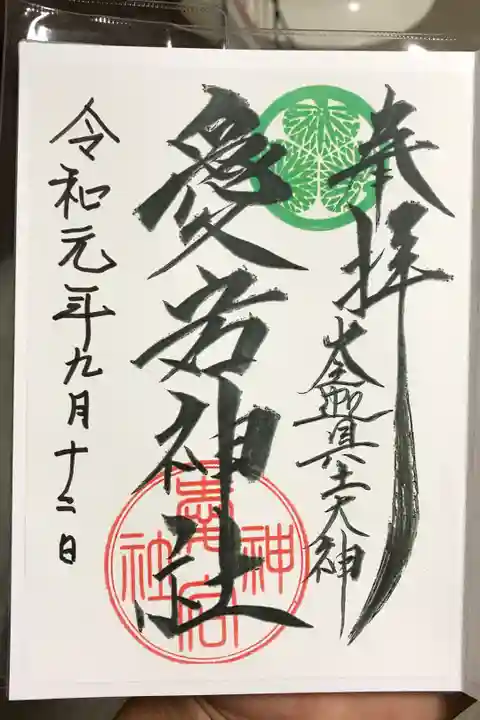 奉拝
具土大神
愛宕神社
令和元年九月十二日
愛宕神社